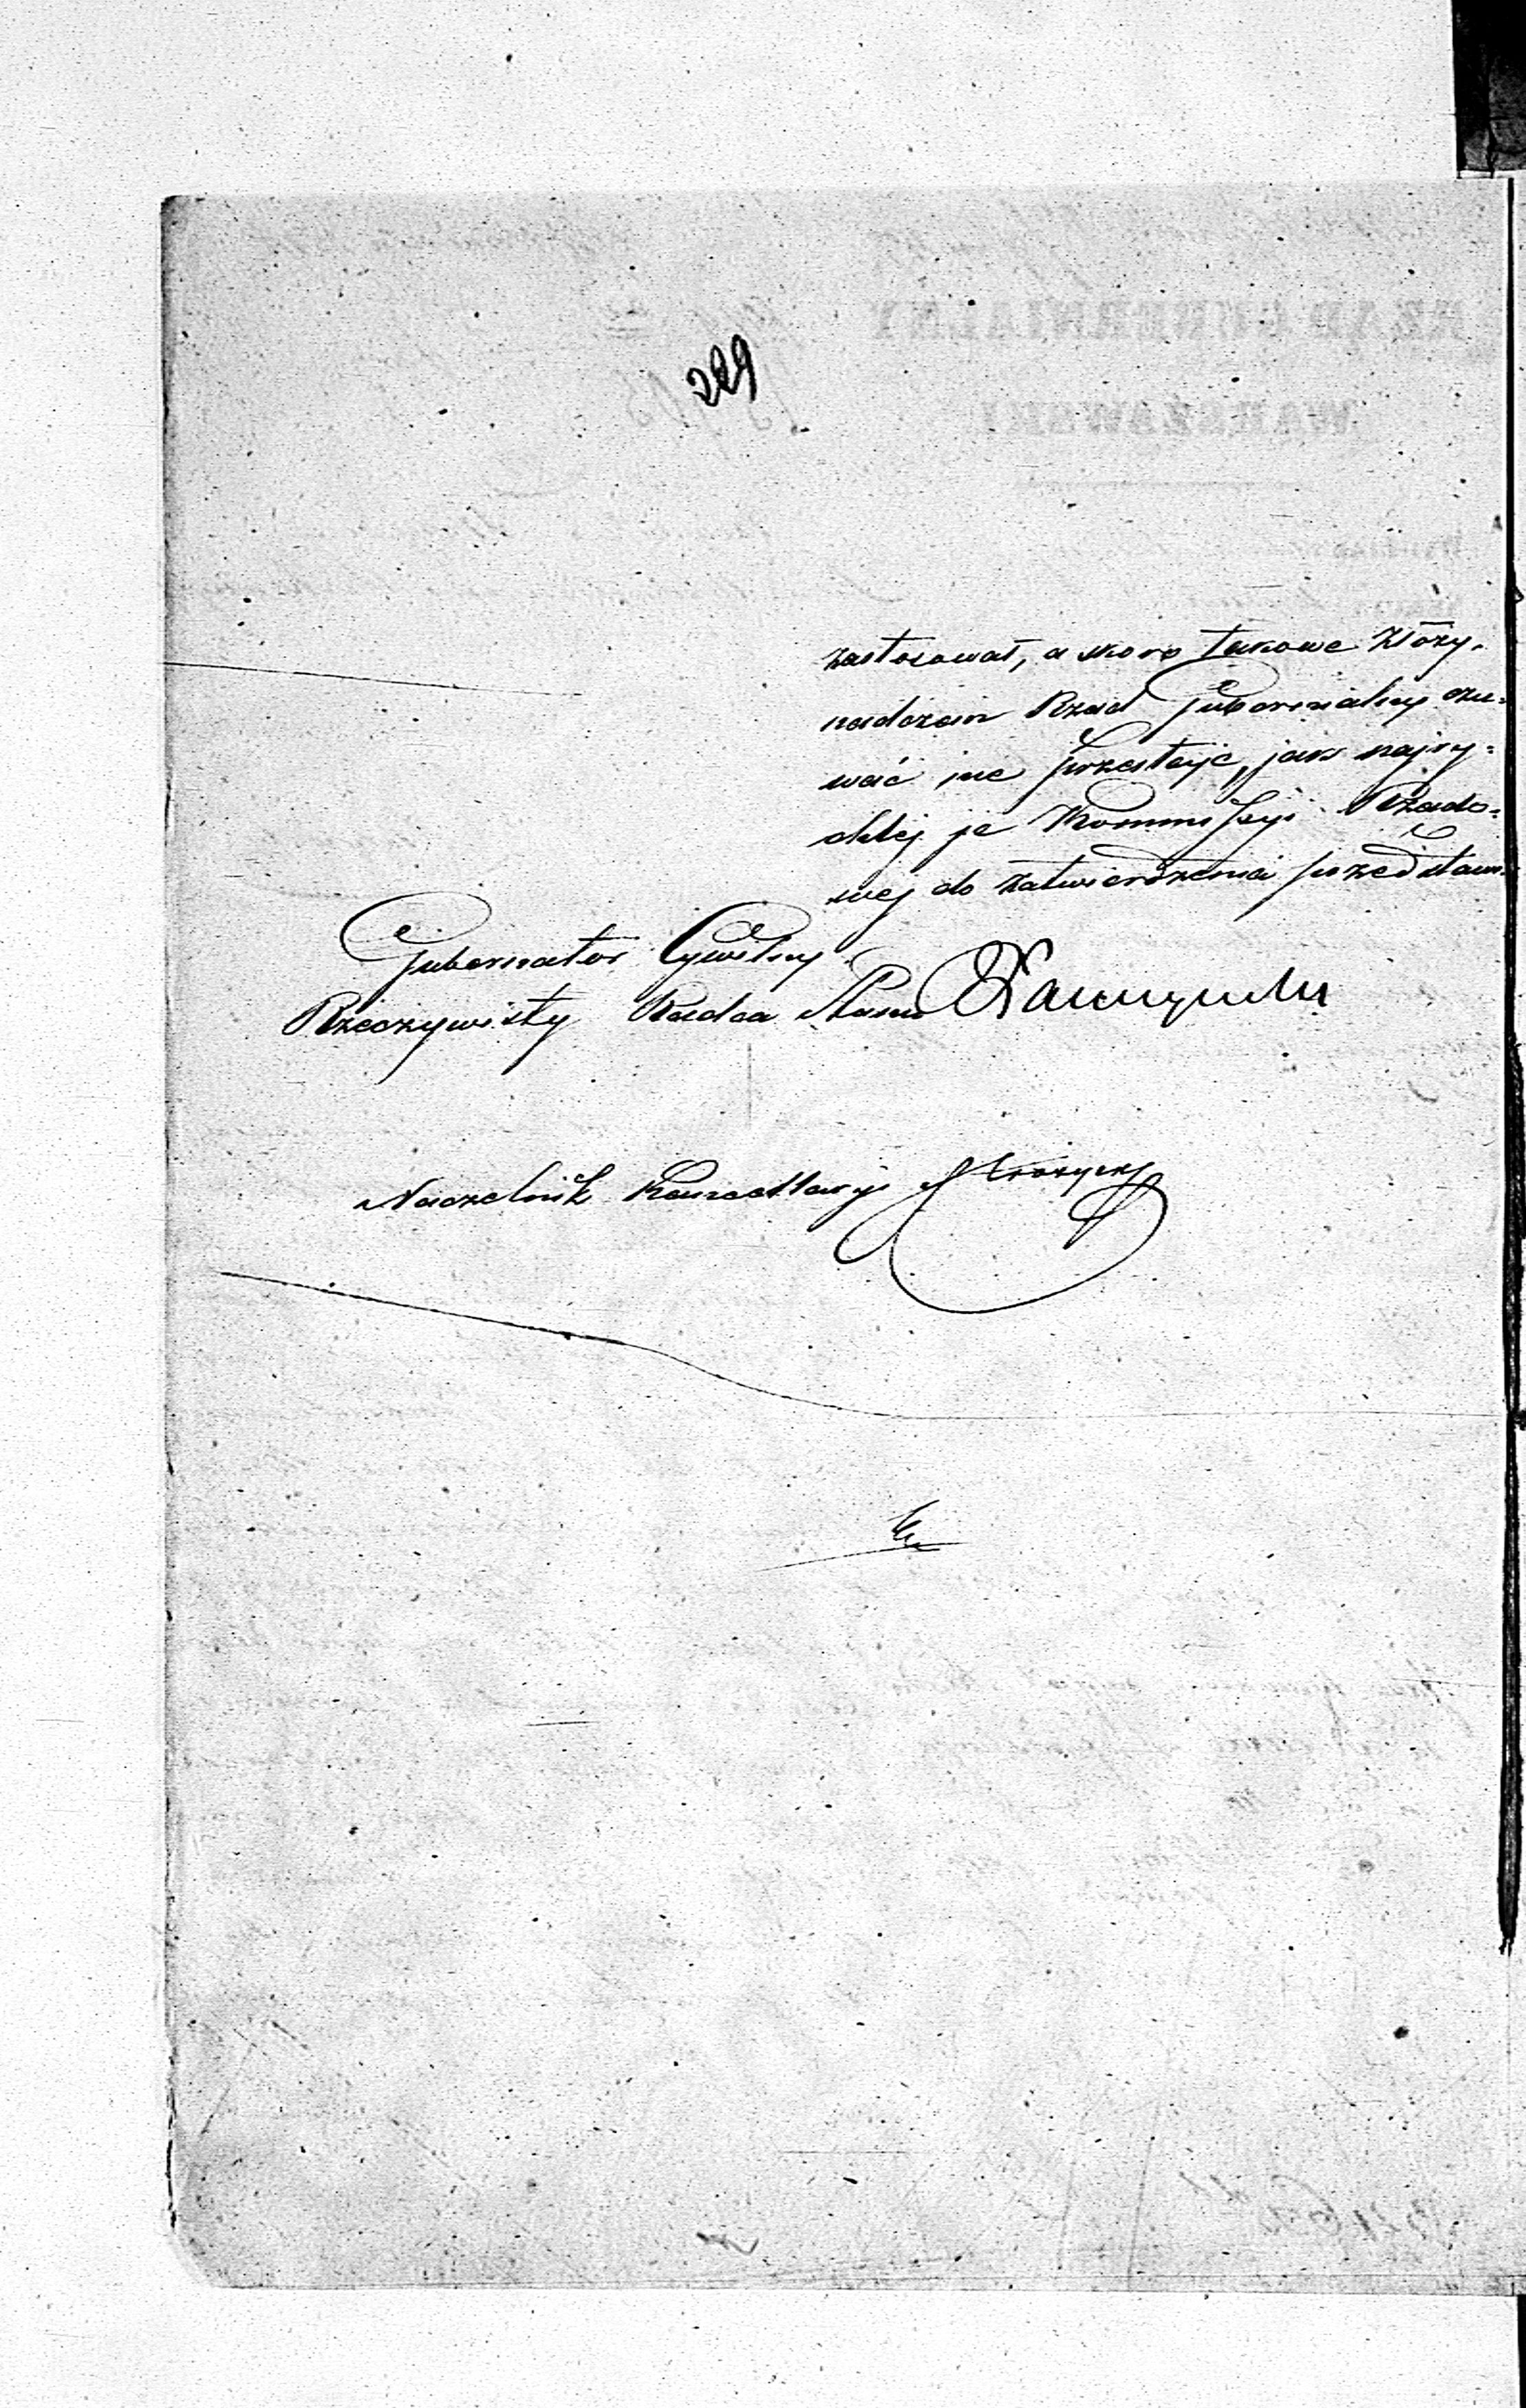 229
zastosował, a skoro takowe złoży,
nadozem Rząd Gubernialny ozu-
wać nie przestaje, jak najry-
chlej je Kommissyi Rządo-
wej do zatwierdzenia przedstawi
Gubernator Cywilny
Rzeczywisty Radca Stanu
Naczelnik Kancellaryi